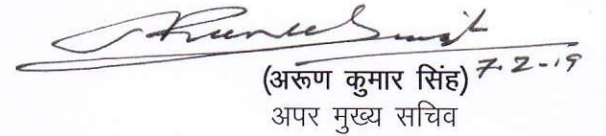 (अरूण कुमार सिंह) 7-2-19
अपर मुख्य सचिव